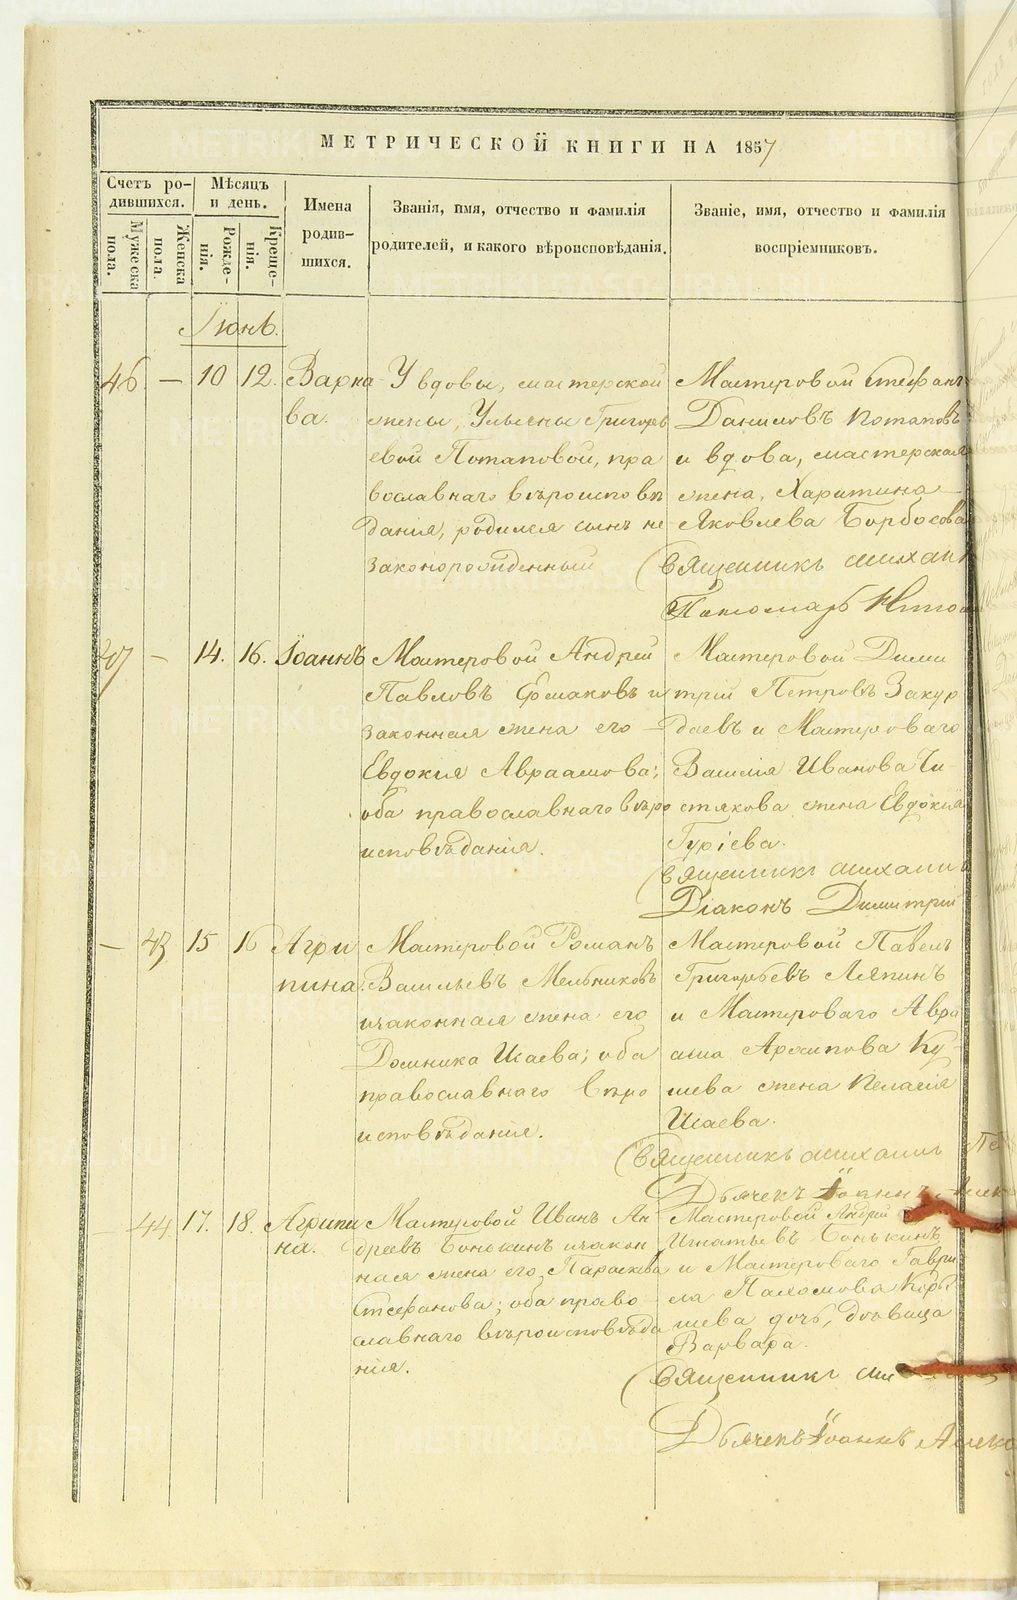 МЕТРИЧЕСКОЙ КНИГИ НА 1857
Счетъ ро-
дившихся.
Мужеска
пола.
Женска
пола.
Мѣсяцъ
и день.
Рожде-
нія.
Креще-
нія.
Имена
родив-
шихся.
Званія, имя, отчество и фамилія
родителей, и какого вѣроисповѣданія.
Званіе, имя, отчество и фамилія
воспріемниковъ.
Іюнь.
46. — 10 12. Варна
ва.
У вдовы, мастерской
жены, Ульяны Григорь
евой Потаповой, пра
вославнаго вѣроисповѣ
данія, родился сынъ не
законорожденный
Мастеровой Стефанъ
Даниловъ Потаповъ
и вдова, мастерская
жена, Харитина
Яковлева Борбосова
Священникъ Михаил
Пономарь Никол
47 — 14. 16. Іоаннъ
Мастеровой Андрей
Павловъ Ермаковъ и
законная жена его —
Евдокія Авраамова;
оба православнаго вѣро
исповѣданія.
Мастеровой Дими
трій Петровъ Закур
даевъ и Мастероваго
Василія Иванова Чи-
стякова жена Евдокія
Гуріева.
Священникъ Михаил
Діаконъ Димитрій
— 43 15 16 Агри
пина.
Мастеровой Романъ
Васильевъ Мельниковъ
и законная жена его
Домника Исаева; оба
православнаго вѣро
исповѣданія.
Мастеровой Павелъ
Григорьевъ Ляпинъ
и Мастероваго Авра
ама Архипова Ку-
шева жена Пелагія
Исаева.
Священникъ Михаилъ
Дьячекъ Іоаннъ Алек
— 44 17. 18. Агрипи
на.
Мастеровой Иванъ Ан
дреевъ Бонькинъ и закон
ная жена его Параскева
Стефанова; оба право-
славнаго вѣроисповѣда
нія.
Мастеровой Андрей
Игнатьевъ Бонькинъ
и Мастероваго Гаври
ла Пахомова
шева дочь, дѣвица
Варвара.
Священникъ Ми
Дьячекъ Іоаннъ Алекс